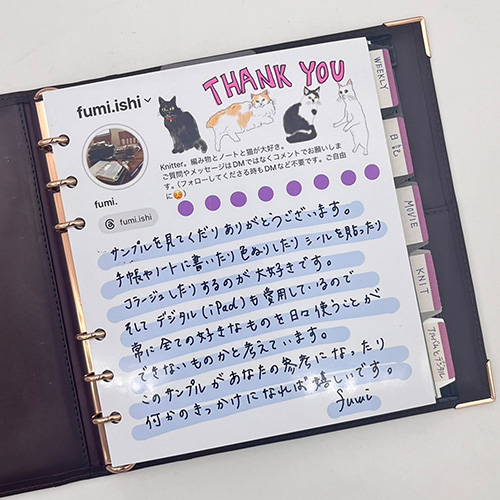 THANK YOU
fumi.ishi
Knitter。編み物とノートと猫が大好き。
ご質問やメッセージはDMではなくコメントでお願いしま
す。(フォローしてくださる時もDMなど不要です。ご自由
に😆)
fumi.
fumi.ishi
サンプルを見てくだりありがとうございます。
手帳やノートに書いたり色ぬりしたりシールを貼ったり
コラージュしたりするのが大好きです。
そしてデジタル(iPad)も愛用しているので
常に全ての好きなものを日々使うことが
できないものかと考えています。
このサンプルがあなたの参考になったり
何かのきっかけになれば嬉しいです。
fumi
WEEKLY
日記
MOVIE
KNIT
アナログとデジタル